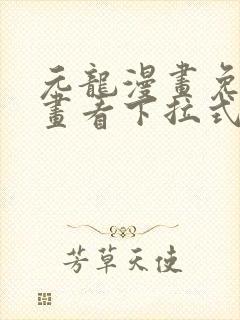 元龍漫畫免
畫者下拉式
芳草天使